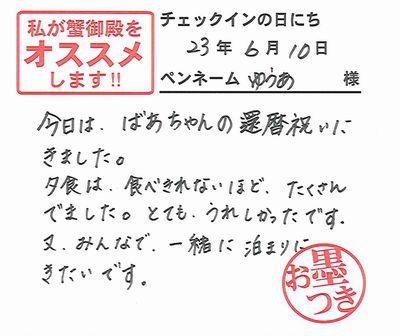 私が蟹御殿を
オススメ
します!!
チェックインの日にち
23年6月10日
ペンネーム ゆうあ 様
今日は、ばあちゃんの還暦祝いに
きました。
夕食は、食べきれないほど、たくさん
でました。とても、うれしかったです。
又、みんなで、一緒に泊まりに
きたいです。
お墨つき